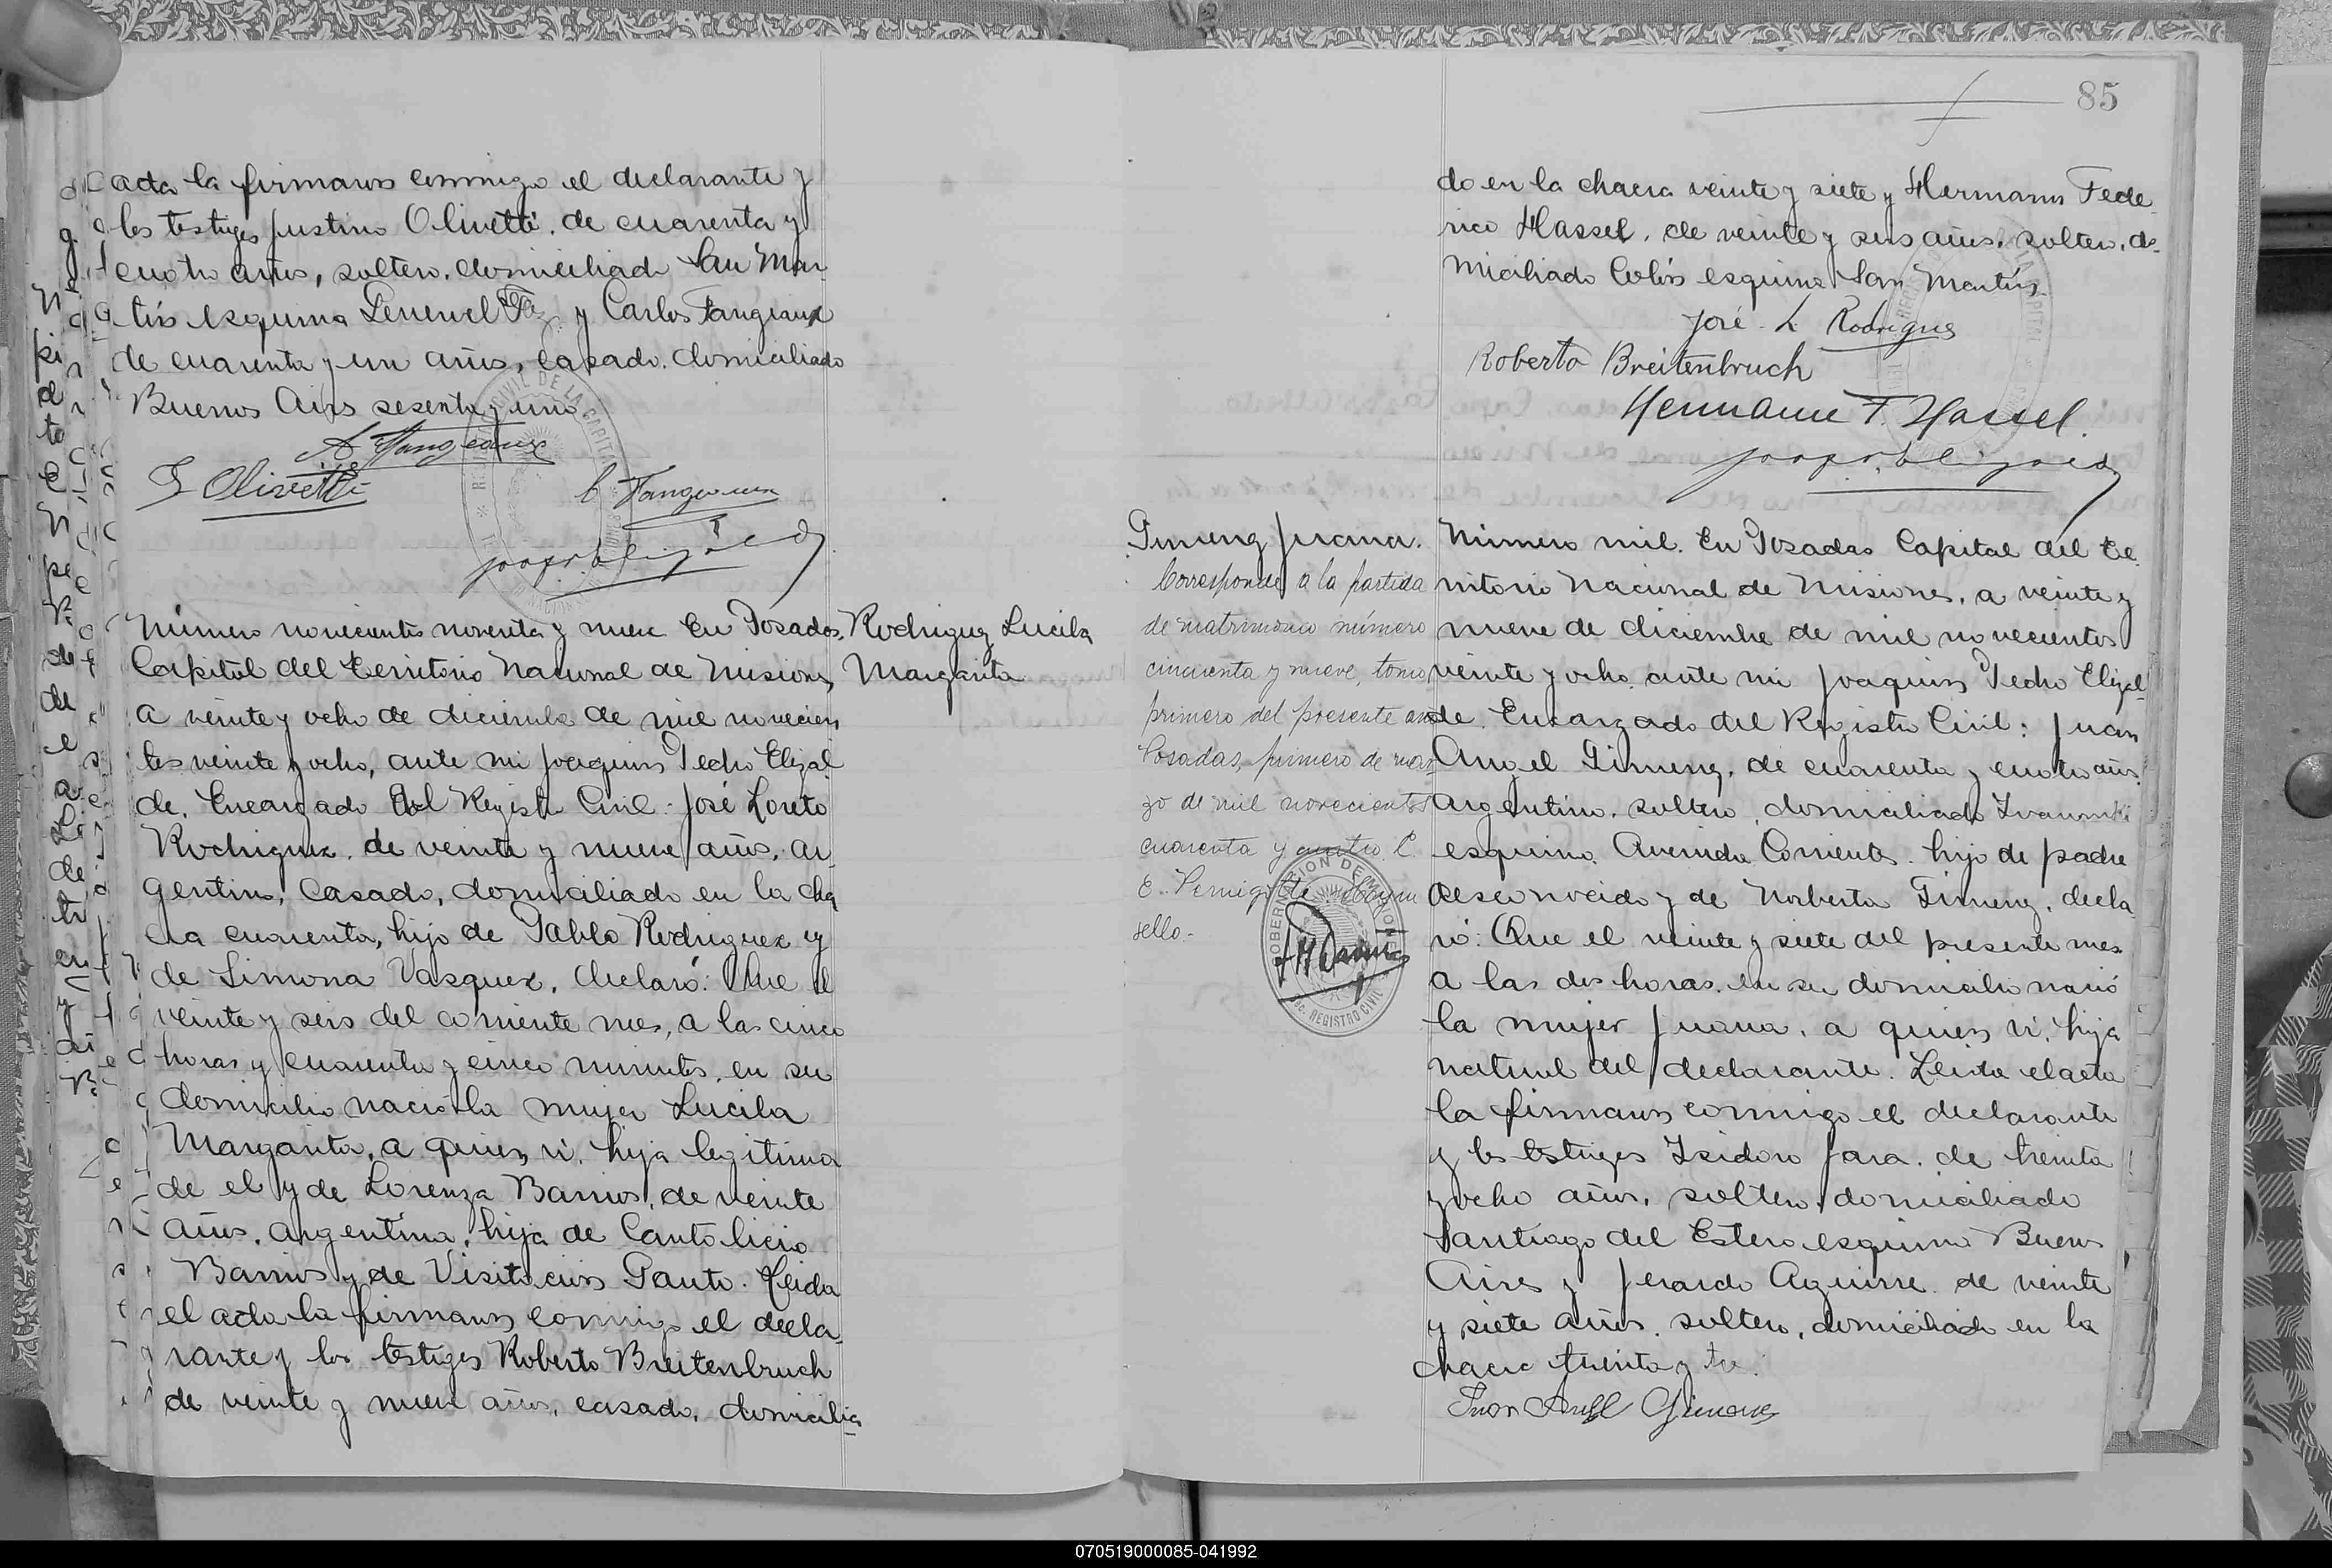 acta la firmaron conmigo el declarante y
los testigos Justino Olivetti, de cuarenta y
cuatro años, soltero, domiciliado San Mar
tin esquina General Paz y Carlos Tangeaux
de cuarenta y un años, casado, domiciliado
Buenos Aires sesenta y uno
A Tangeaux
J Olivetti
C Tangeaux
Número novecientos noventa y nueve En Posadas,
Capital del Territorio Nacional de Misiones,
a veinte y ocho de diciembre de mil novecien
tos veinte y ocho, ante mi Joaquin Pedro Elizal
de, Encargado del Registro Civil: José Loreto
Rodriguez, de veinte y nueve años, ar
gentino, casado, domiciliado en la cha
cra cuarenta, hijo de Pablo Rodriguez y
de Simona Vasquez, declaró: Que el
veinte y seis del corriente mes, a las cinco
horas y cuarenta y cinco minutos, en su
domicilio nació la mujer Lucila
Margarita, a quien vi, hija legitima
de el y de Lorenza Barrios, de veinte
años, argentina, hija de Cantolicio
Barrios y de Visitacion Gauto. Leida
el acta la firmaron conmigo el decla
rante y los testigos Roberto Breitenbruch
de veinte y nueve años, casado, domicilia
Rodriguez Lucila
Margarita
85
do en la chacra veinte y siete y Hermann Fede
rico Hassel, de veinte y seis años, soltero, do
miciliado Colón esquina San Martin.
José L Rodrigues
Roberto Breitenbruch
Hermann F. Hassel.
Gimenez Juana.
Corresponde a la partida
de matrimonio número
cincuenta y nueve, tomo
primero del presente año
Posadas, primero de mar
zo de mil novecientos
cuarenta y cuatro. C.
sello.-
GOBERNACION DE MISIONES
REGISTRO CIVIL
Número mil. En Posadas Capital del Te
rritorio Nacional de Misiones, a veinte y
nueve de diciembre de mil novecientos
veinte y ocho, ante mi Joaquin Pedro Elizal
de, Encargado del Registro Civil: Juan
Angel Gimenez, de cuarenta y cuatro años,
argentino, soltero, domiciliado
esquina Avenida Corrientes, hijo de padre
desconocido y de Norberta Gimenez, decla
ró: Que el veinte y siete del presente mes
a las dos horas, en su domicilio nació
la mujer Juana, a quien vi, hija
natural del declarante. Leida el acta
la firmaron conmigo el declarante
y los testigos Isidoro Jara, de treinta
y ocho años, soltero, domiciliado
Santiago del Estero esquina Buenos
Aires y Jerardo Aguirre, de veinte
y siete años, soltero, domiciliado en la
chacra treinta y tres.
Juan Angel Gimenez
070519000085-041992